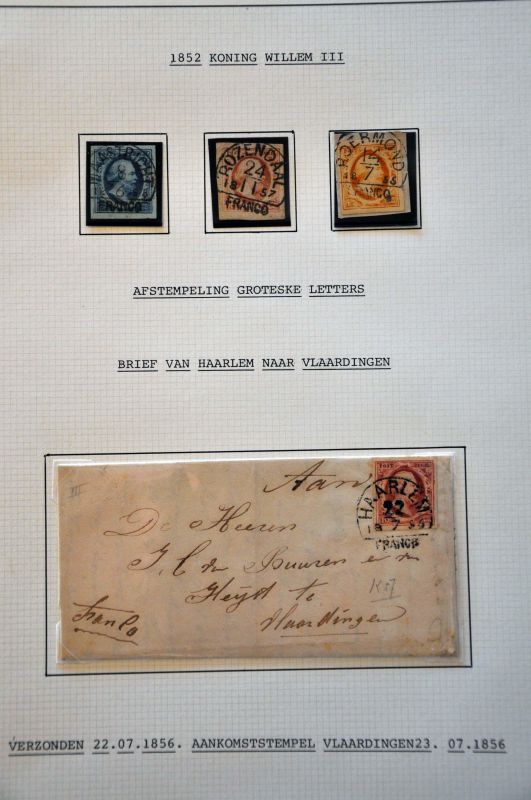 1852 KONING WILLEM III
ROZENDAAL
24
11
18 57
FRANCO
ROERMOND
7
FRANCO
FRANCO
AFSTEMPELING GROTESKE LETTERS
BRIEF VAN HAARLEM NAAR VLAARDINGEN
III
Aan
POST ZEGEL
HAARLEM
22
7
FRANCO
De Heeren
Heyst te
Vlaardingen
Franco
VERZONDEN 22.07.1856. AANKOMSTSTEMPEL VLAARDINGEN23. 07.1856